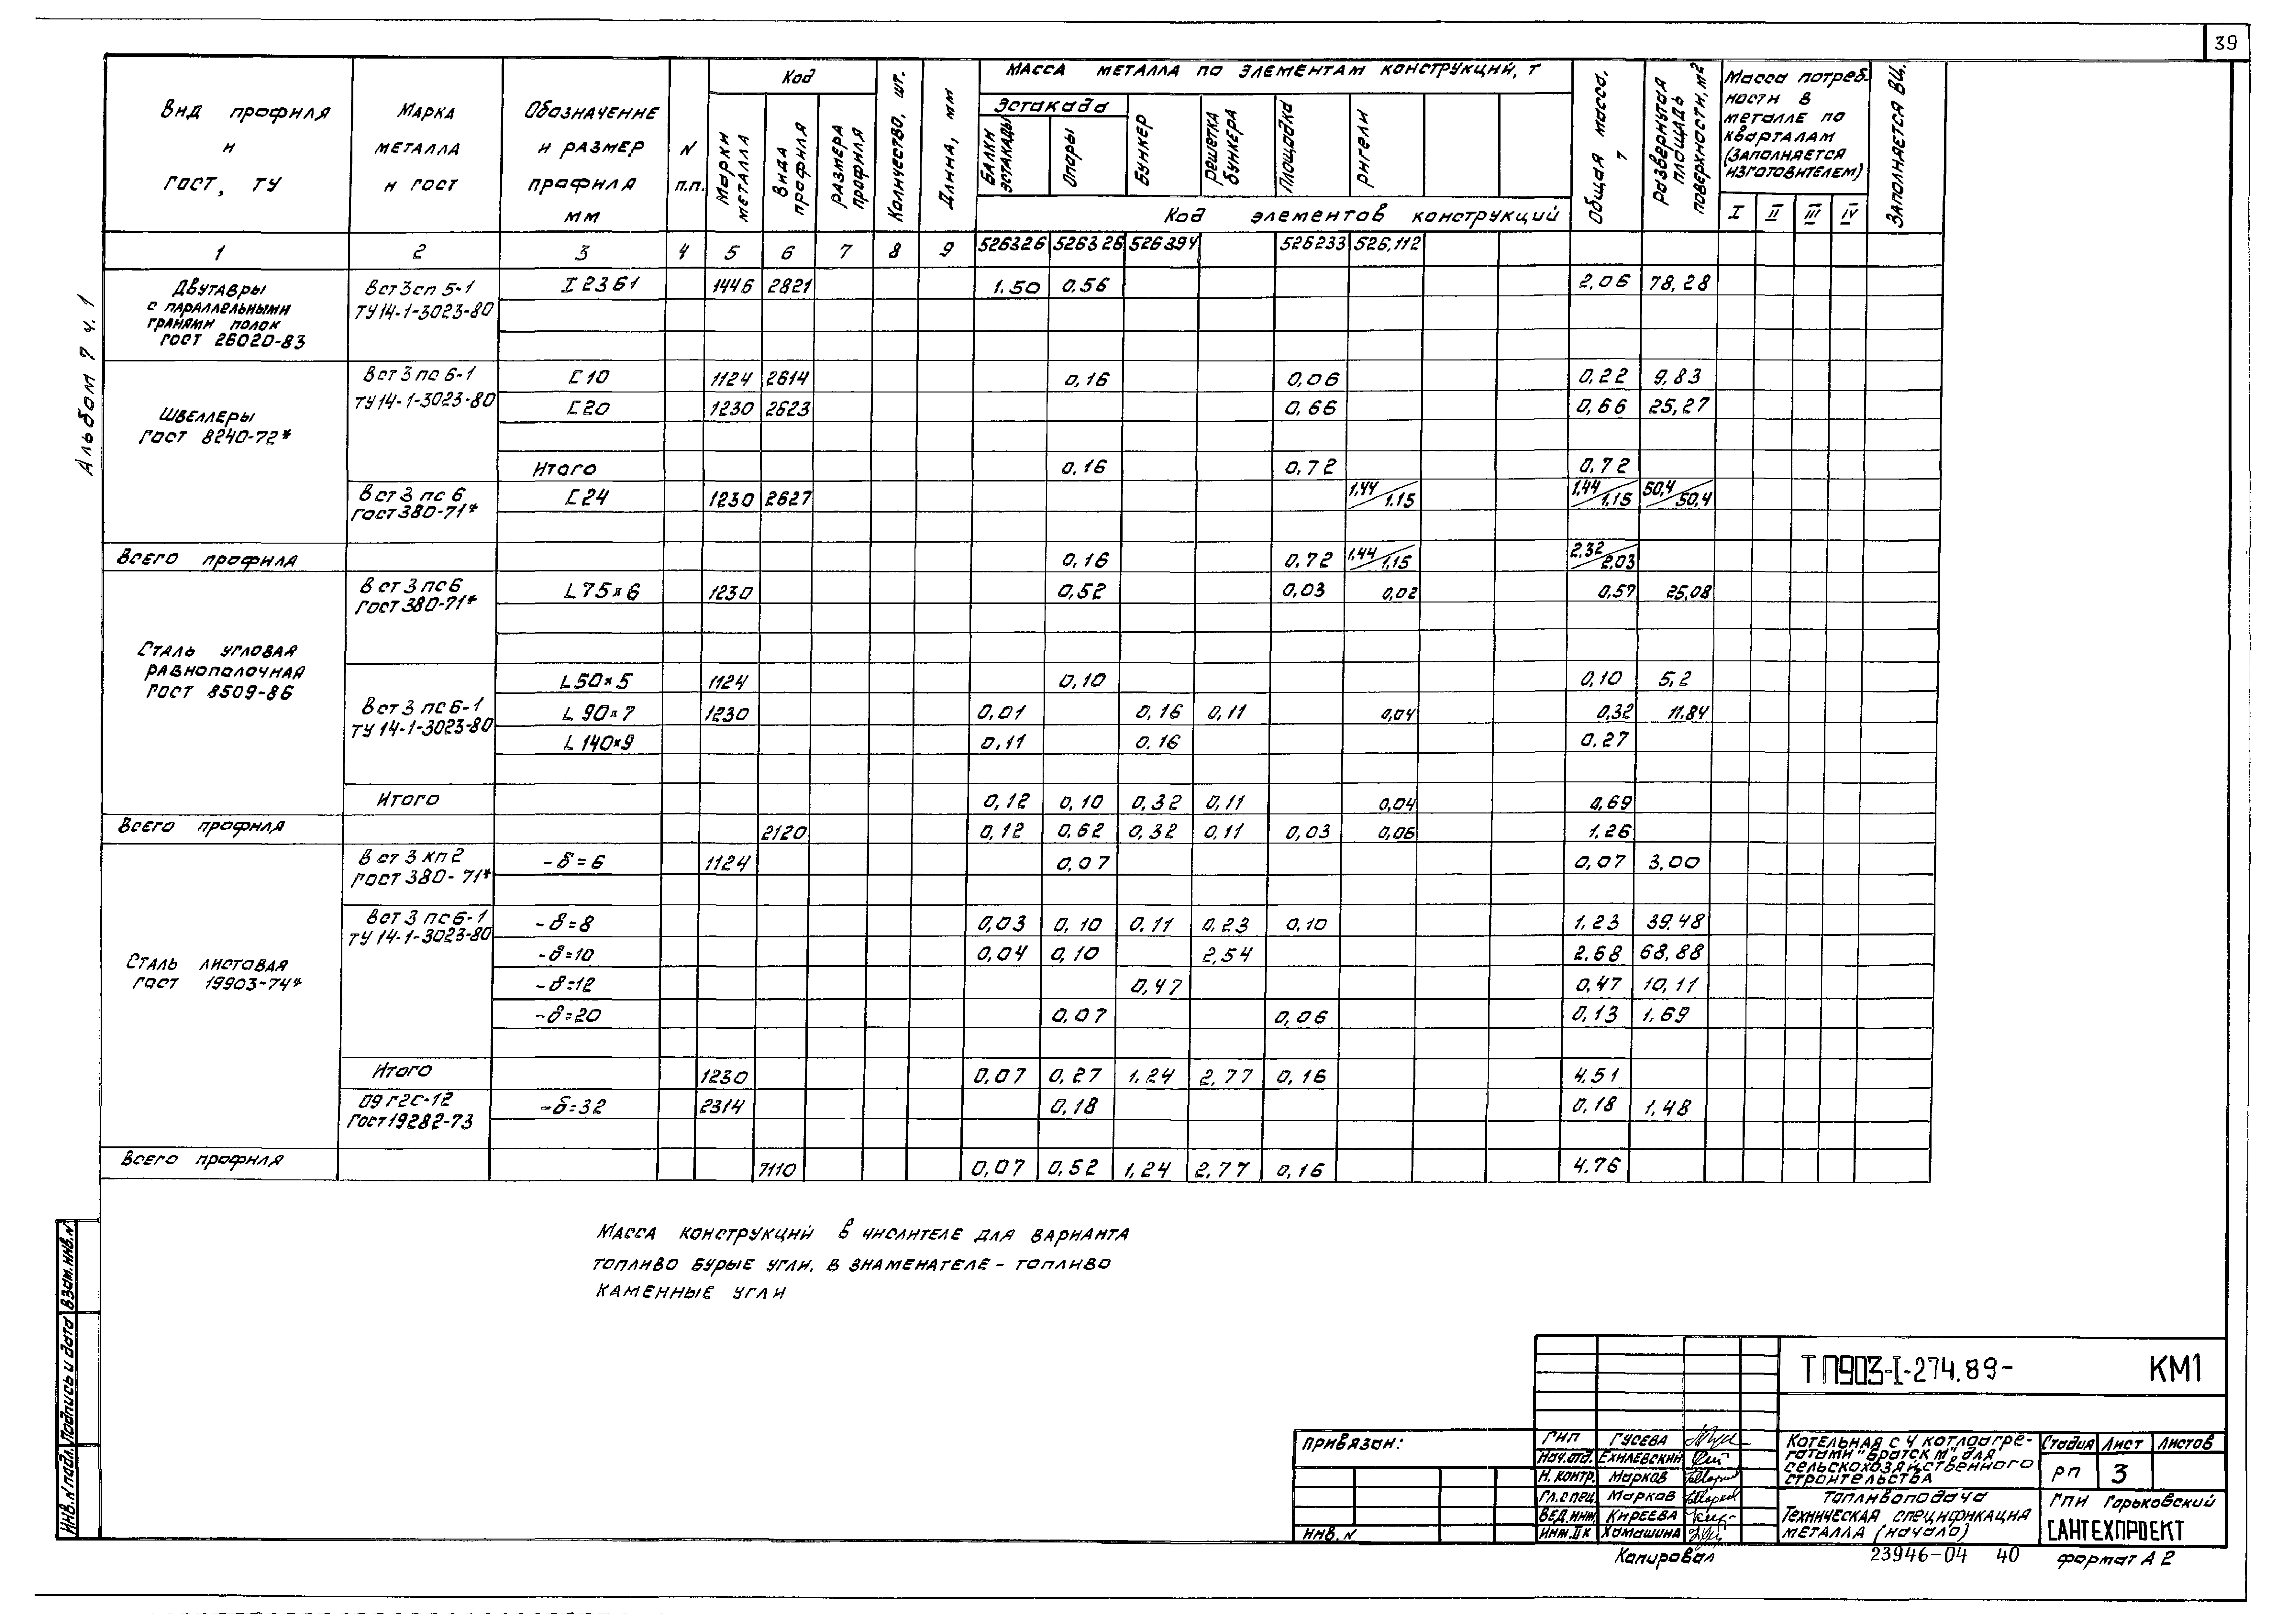 39
Альбом 7 ч. 1
Вид профиля и ГОСТ, ТУ
Марка металла и ГОСТ
Обозначение и размер профиля мм
N п.п.
Код
Марки металла
Вида профиля
Размера профиля
Количество, шт.
Длина, мм
Масса металла по элементам конструкций, т
Эстакада
Балки эстакады
Опоры
Бункер
Решетка бункера
Площадка
Ригели
Код элементов конструкций
Общая масса, т
Развернутая площадь поверхности, м2
Масса потребности в металле по кварталам (заполняется изготовителем)
I II III IV
Заполняется ВЦ.
1 2 3 4 5 6 7 8 9 526326 526326 526394 526233 526,112
Двутавры с параллельными гранями полок ГОСТ 26020-83
Вст3сп 5-1 ТУ14-1-3023-80
I 23Б1 1446 2821 1.50 0.56 2,06 78,28
Швеллеры ГОСТ 8240-72*
Вст3пс6-1 ТУ14-1-3023-80
[10 1124 2614 0,16 0,06 0,22 9,83
[20 1230 2623 0,66 0,66 25,27
Итого 0,16 0,72 0,72
Вст3пс6 ГОСТ380-71*
[24 1230 2627 1,44/1,15 1,44/1,15 50,4/50,4
Всего профиля 0,16 0,72 1,44/1,15 2,32/2,03
Сталь угловая равнополочная ГОСТ 8509-86
Вст3пс6 ГОСТ380-71*
L75х6 1230 0,52 0,03 0,02 0,57 25,08
Вст3пс6-1 ТУ14-1-3023-80
L50х5 1124 0,10 0,10 5,2
L90х7 1230 0,01 0,16 0,11 0,04 0,32 11,84
L140х9 0,11 0,16 0,27
Итого 0,12 0,10 0,32 0,11 0,04 0,69
Всего профиля 2120 0,12 0,62 0,32 0,11 0,03 0,06 1,26
Сталь листовая ГОСТ 19903-74*
Вст3кп2 ГОСТ380-71*
-δ=6 1124 0,07 0,07 3,00
Вст3пс6-1 ТУ14-1-3023-80
-δ=8 0,03 0,10 0,11 0,23 0,10 1,23 39,48
-δ=10 0,04 0,10 2,54 2,68 68,88
-δ=12 0,47 0,47 10,11
-δ=20 0,07 0,06 0,13 1,69
Итого 1230 0,07 0,27 1,24 2,77 0,16 4,51
09Г2С-12 ГОСТ19282-73
-δ=32 2314 0,18 0,18 1,48
Всего профиля 7110 0,07 0,52 1,24 2,77 0,16 4,76
Масса конструкций в числителе для варианта
топливо бурые угли, в знаменателе - топливо
каменные угли
Инв.N подл. Подпись и дата Взам.инв.N
Привязан:
Инв. N
ТП903-I-274.89- КМ1
ГИП Гусева
Нач.отд. Ехилевский
Н. контр. Марков
Гл.спец. Марков
Вед.инж. Киреева
Инж.IIк Хамашина
Котельная с 4 котлоагре-
гатами "Братск М" для
сельскохозяйственного
строительства
Стадия Лист Листов
РП 3
Топливоподача
Техническая спецификация
металла (начало)
ГПИ Горьковский
САНТЕХПРОЕКТ
Копировал 23946-04 40 формат А2